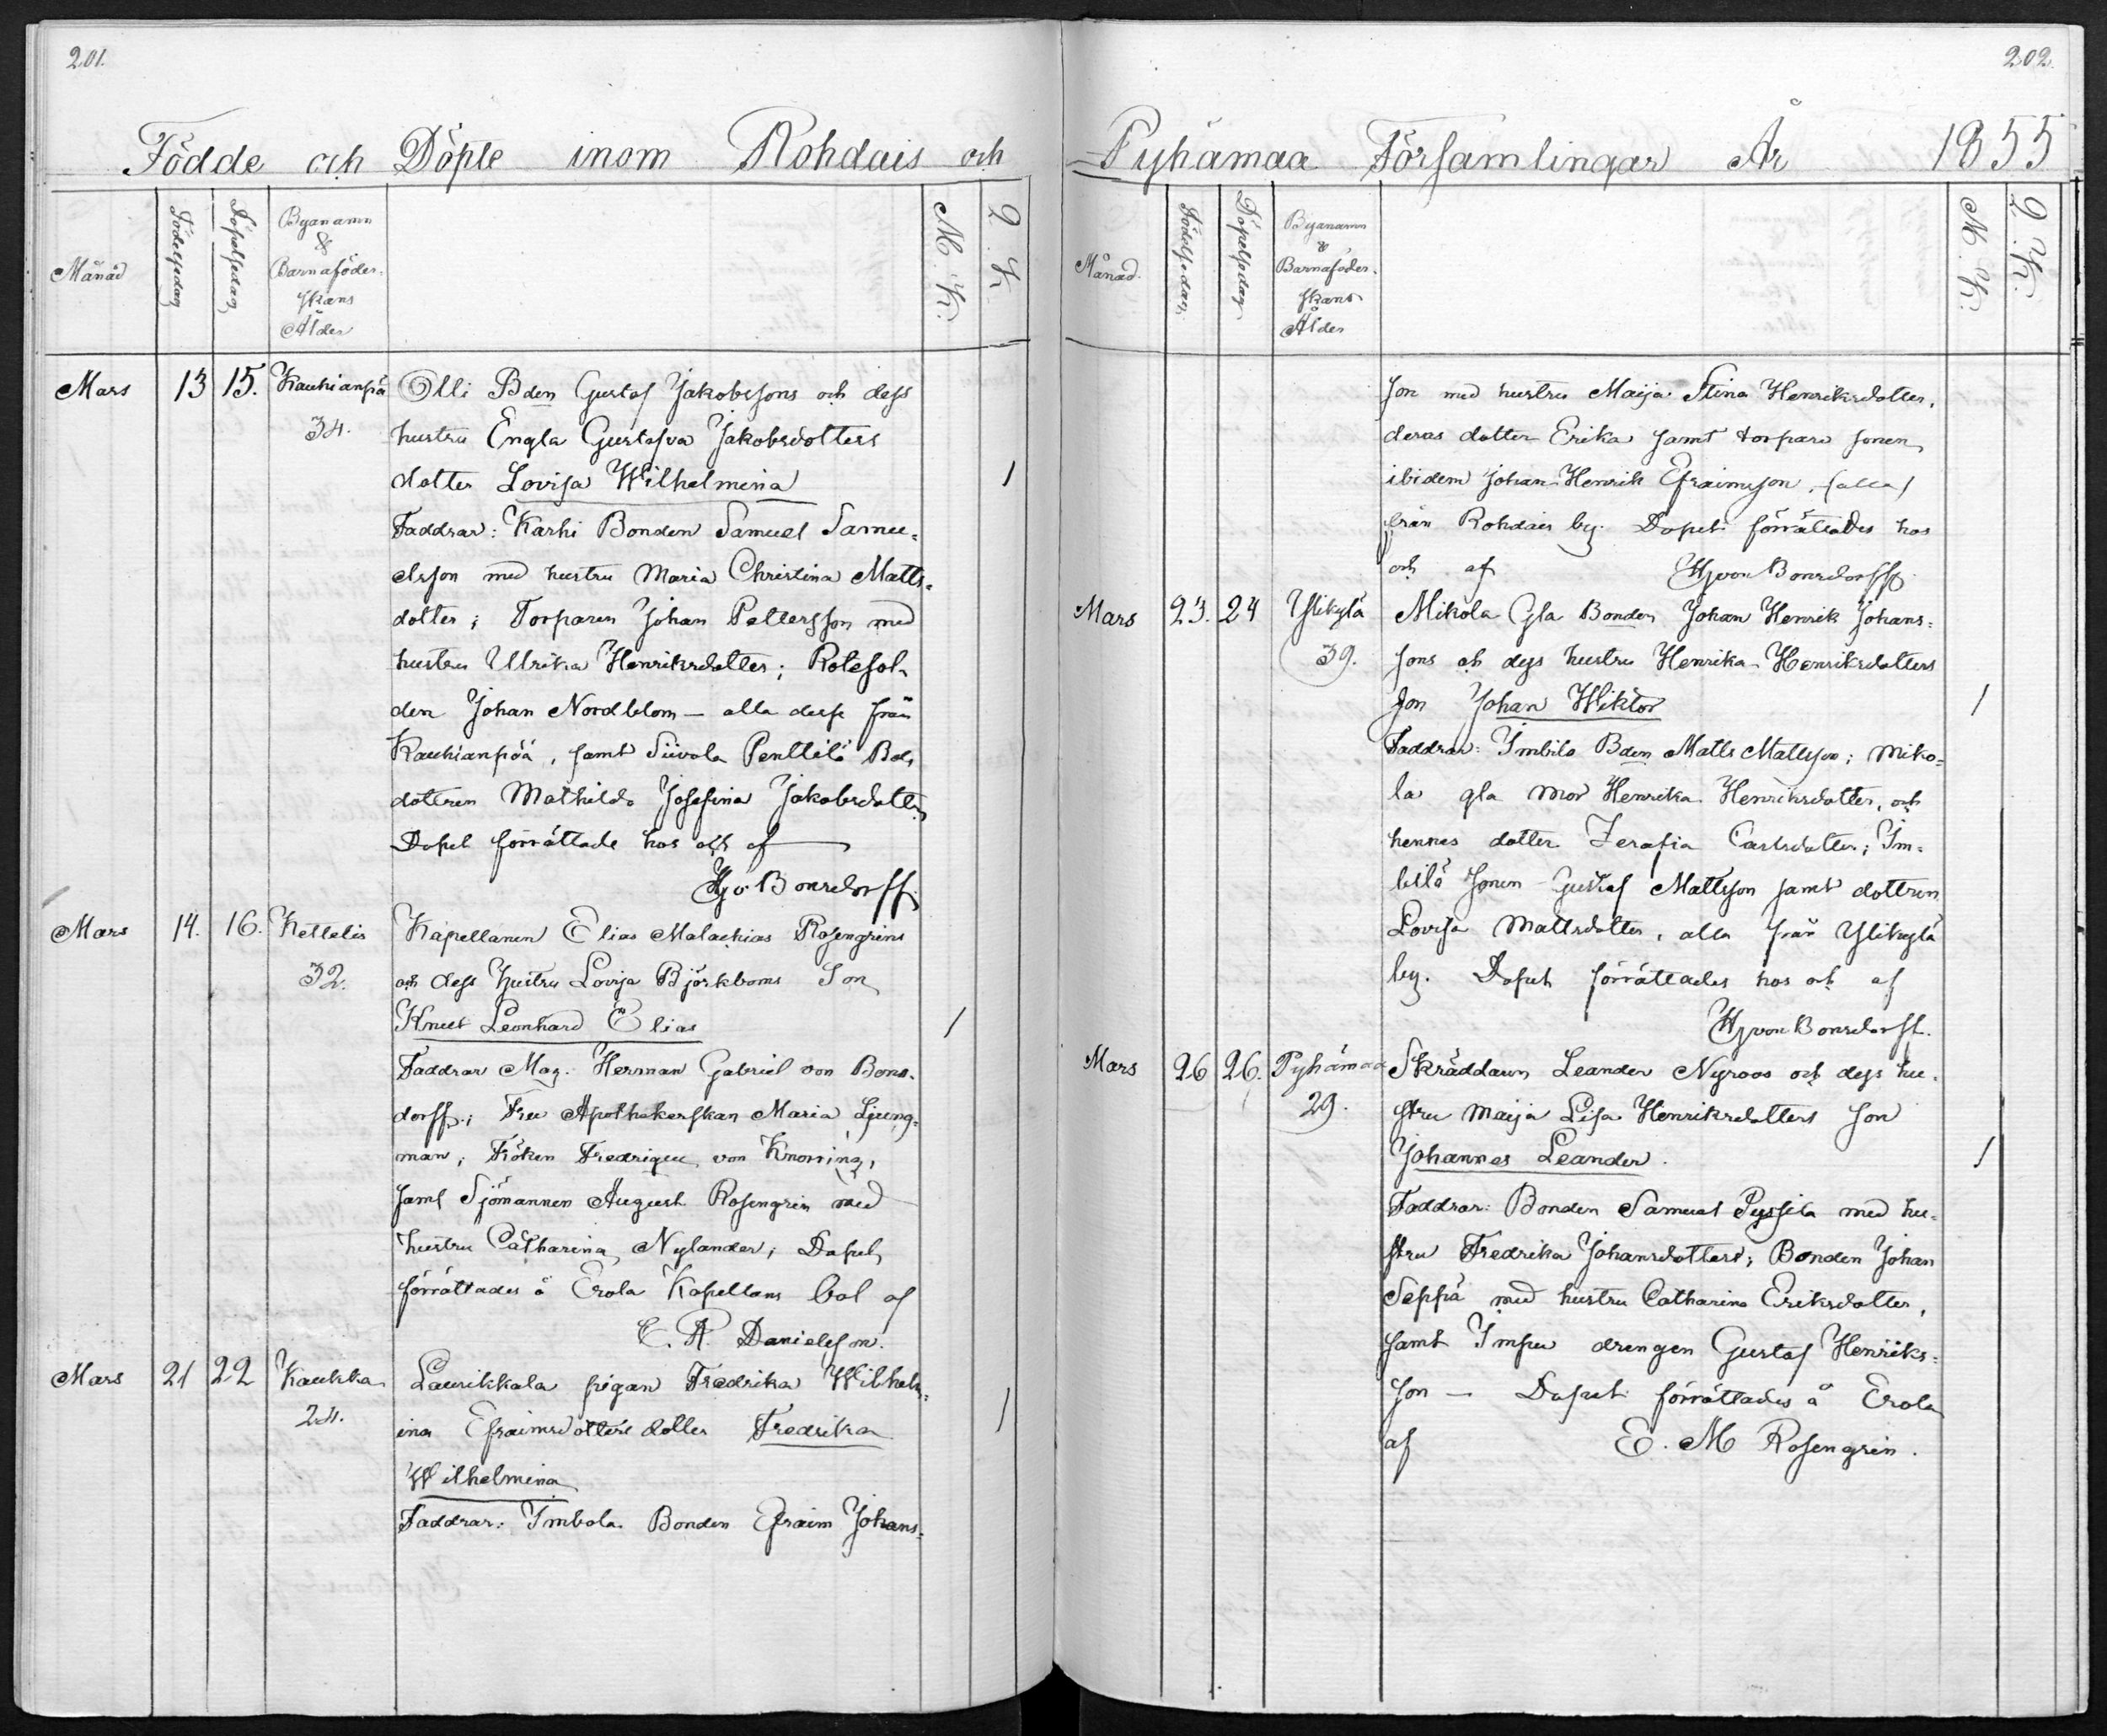 201.
Födde och Döpte inom Rohdais och
Månad
Födelsedag
Döpelsedag
Byanamn
&
Barnaföder-
skans
Ålder
M. K.
Q. K.
Mars 13 15. Kauhianpä Olli Bden Gustaf Jakobssons och dess
34. hustru Engla Gustafva Jakobsdotters
dotter Lovisa Wilhelmina 1
Faddrar: Karhi Bonden Samuel Samu-
elsson med hustru Maria Christina Matts-
dotter; Torparen Johan Pettersson med
hustru Ulrika Henriksdotter; Rotesol-
den Johan Nordblom — alla desse från
Kauhianpää, samt Siivola Penttilä Bds
dottren Mathilda Josefina Jakobsdotter
Dopet förrättade hos och af
Hj v. Bonsdorff.
Mars 14. 16. Kettelis Kapellanen Elias Malachias Rosengrens
32. och dess hustru Lovisa Björkboms Son
Knut Leonhard Elias 1
Faddrar Mag. Herman Gabriel von Bons-
dorff.; Fru Apothekerskan Maria Ljung-
man, Fröken Fredrique von Knorring,
samt Sjömannen August Rosengren med
hustru Catharina Nylander; Dopet
förrättades å Erola Kapellans bol af
E. A. Danielsson.
Mars 21 22 Kaukka Laurikkala pigan Fredrika Wilhelm-
24. ina Efraimsdotters dotter Fredrika 1
Wilhelmina
Faddrar: Imbola Bonden Efraim Johans-
202.
Pyhämaa Församlingar År 1855
Månad.
Födelsedag
Döpelsedag
Byanamn
&
Barnaföder-
skans
Ålder
M. K.
Q. K.
son med hustru Maija Stina Henriksdotter,
deras dotter Erika samt torpare sonen
ibidem Johan Henrik Efraimsson, (alla)
från Rohdais by. Dopet förrättades hos
och af Hj von Bonsdorff
Mars 23. 24 Ylikylä Mikola Gla Bonden Johan Henrik Johans-
39. sons och dess hustru Henrika Henriksdotters
son Johan Wiktor 1
Faddrar: Imbilä Bden Matts Mattsson; Miko-
la gla mor Henrika Henriksdotter, och
hennes dotter Serafia Carlsdotter; Im-
bilä sonen Gustaf Mattsson samt dottren
Lovisa Mattsdotter, alla från Ylikylä
by. Dopet förrättades hos och af
Hj von Bonsdorff.
Mars 26 26. Pyhämaa Skräddarn Leander Nyroos och dess hu-
29. stru Maija Lisa Henriksdotters son
Johannes Leander. 1
Faddrar: Bonden Samuel Pyssilä med hu-
stru Fredrika Johansdotters; Bonden Johan
Seppä med hustru Catharina Eriksdotter,
samt Impu drengen Gustaf Henriks-
son — Dopet förrättades å Erola
af E. M Rosengren.